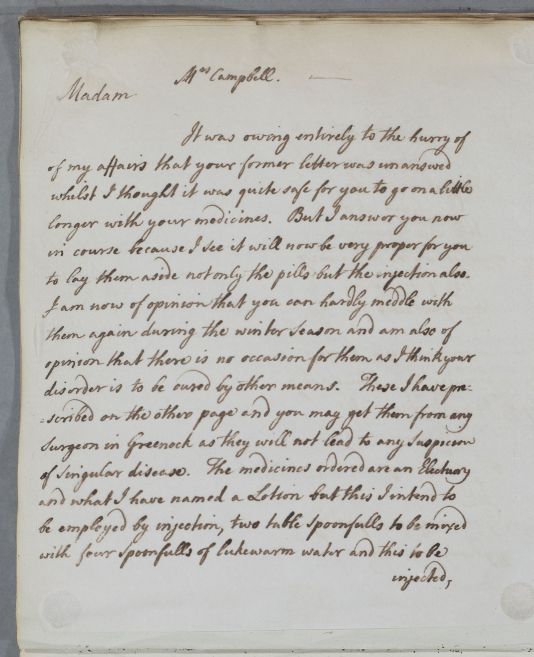 Mrs Campbell.
Madam
It was owing entirely to the hurry of
of my affairs that your former letter was unanswed
whilst I thought it was quite safe for you to go on a little
longer with your medicines. But I answer you now
in course because I see it will now be very proper for you
to lay them aside not only the pills but the injection also.
I am now of opinion that you can hardly meddle with
them again during the winter season and am also of
opinion that there is no occasion for them as I think your
disorder is to be cured by other means. These I have pre-
-scribed on the other page and you may get them from any
Surgeon in Greenock as they will not lead to any suspicion
of singular disease. The medicines ordered are an Electuary
and what I have named a Lotion but this I intend to
be employed by injection, two table spoonfulls to be mixed
with four spoonfulls of lukewarm water and this to be
injected,